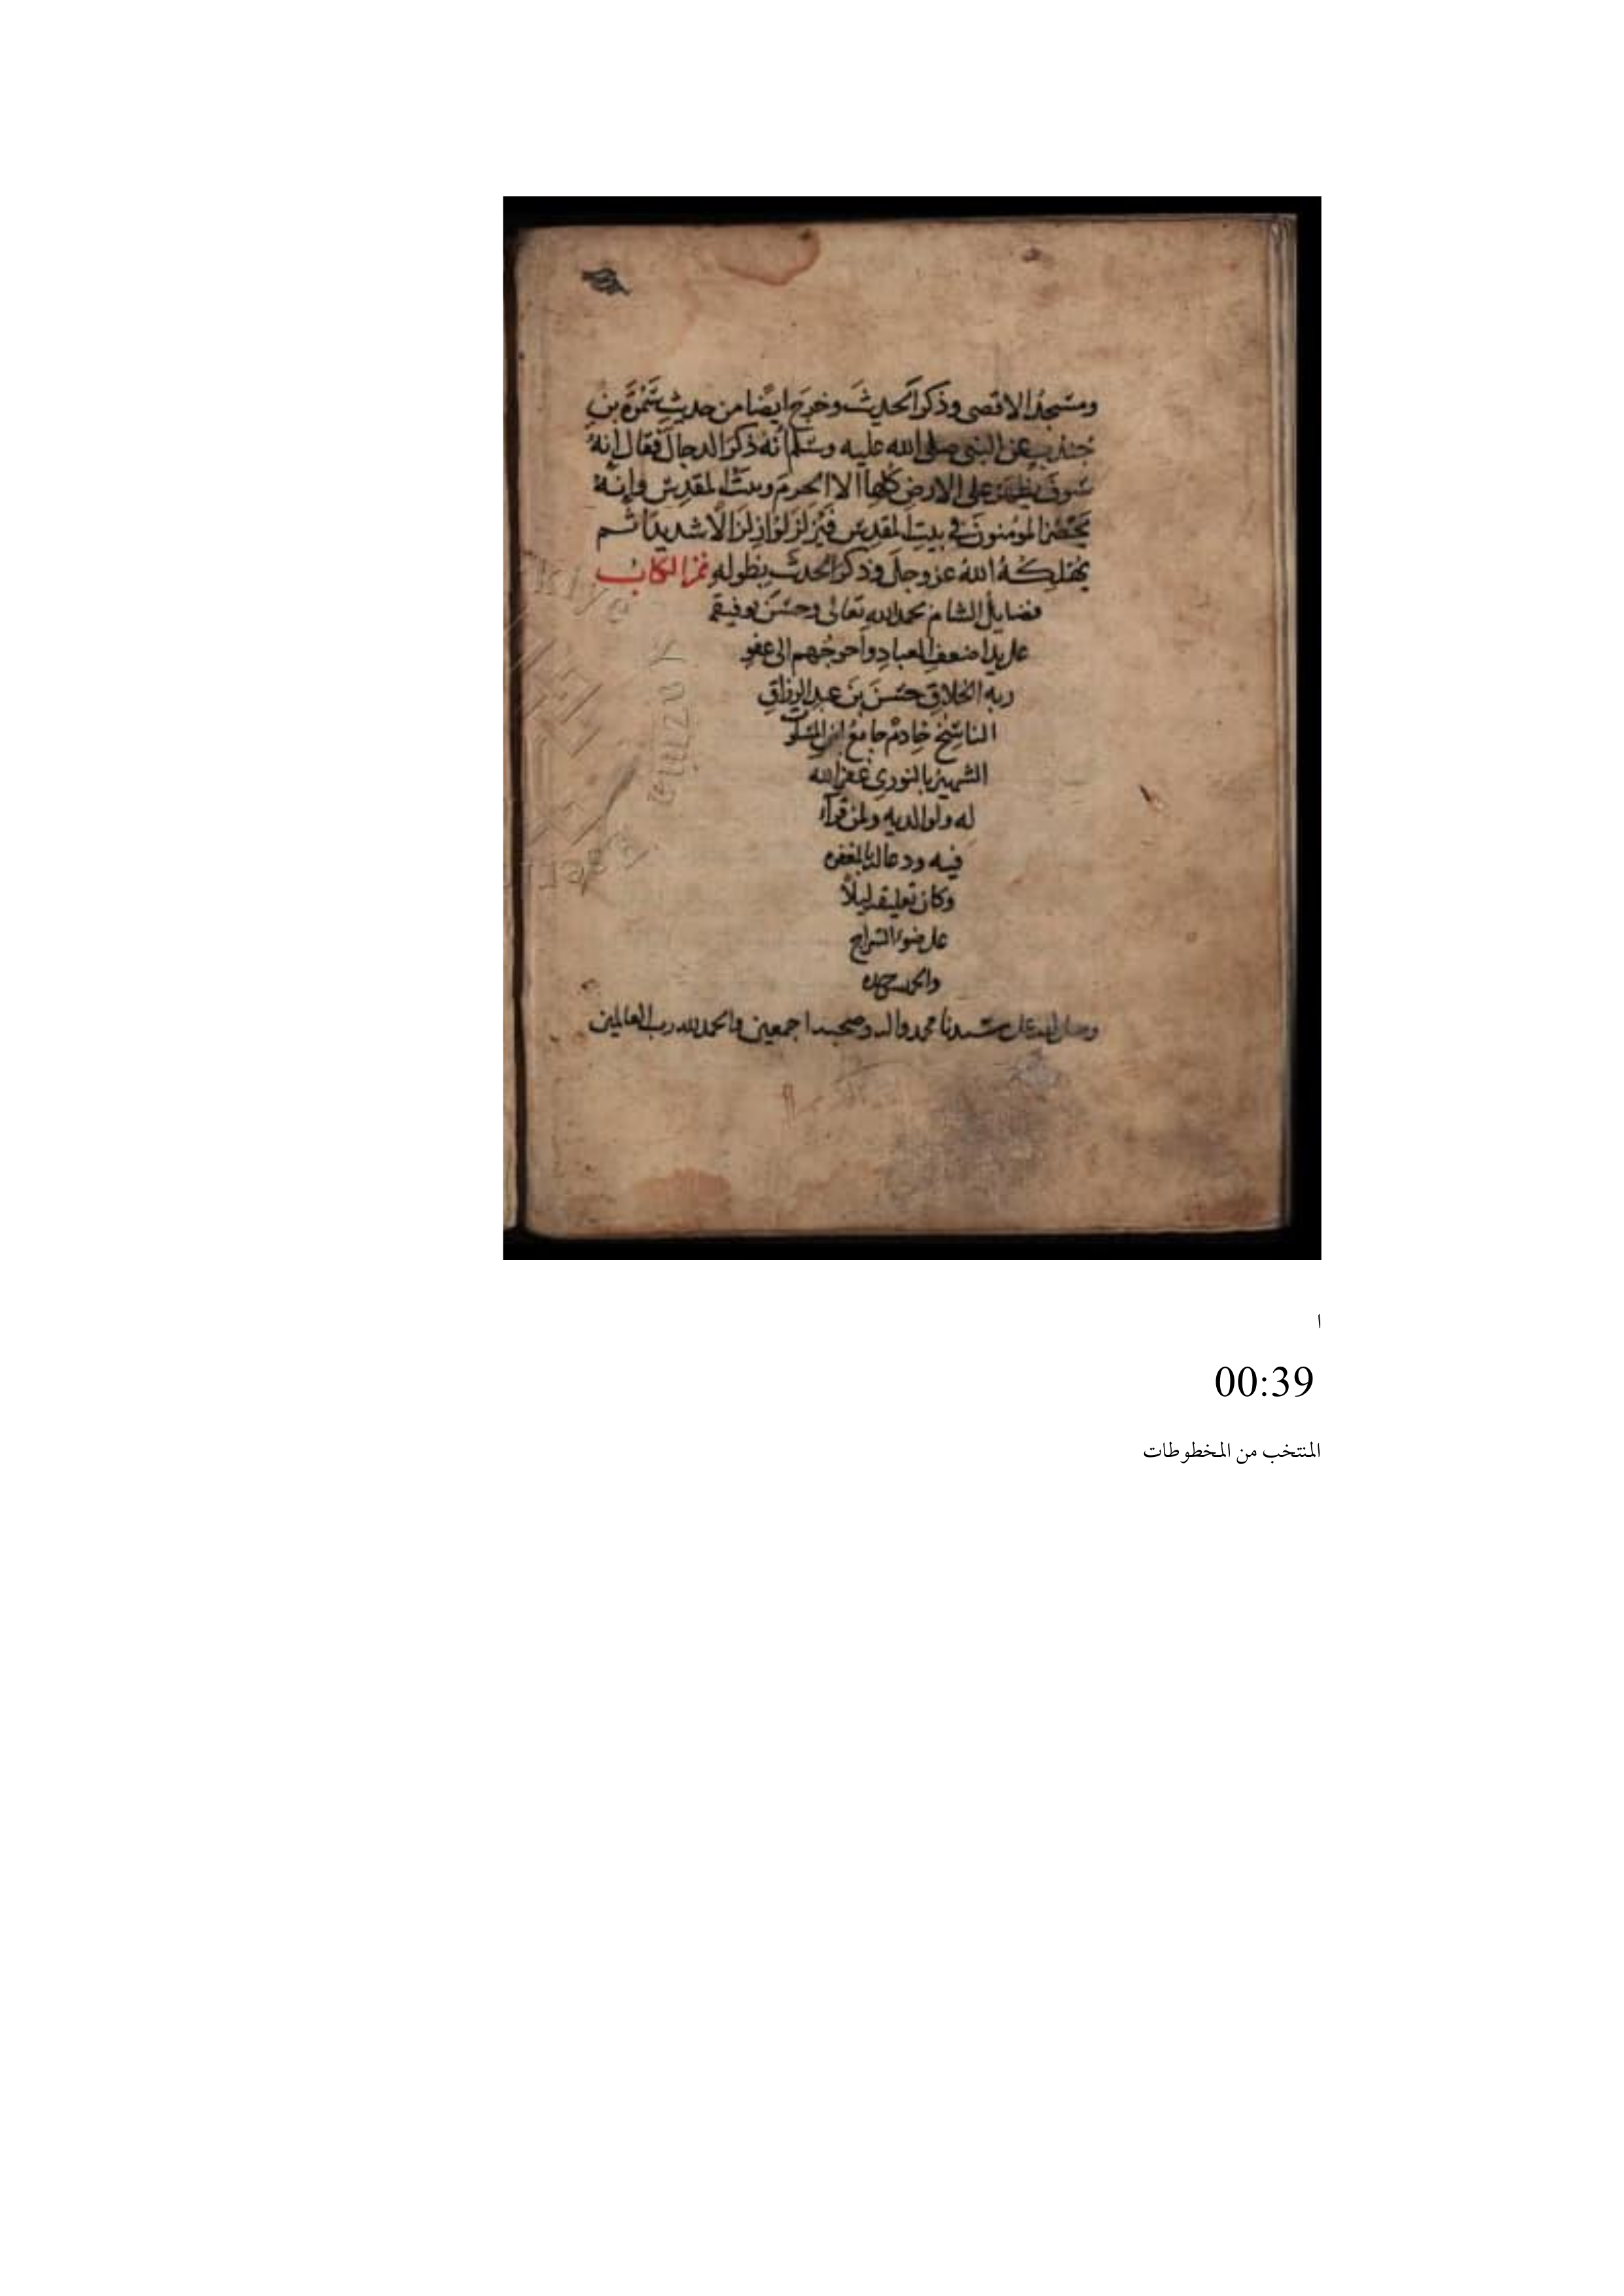 ومسجدُ الاقصى وذكر الحديثَ وخرجَ ايضًا من حديثِ سَمُرَة بنِ
جندبٍ عن النبى صلى الله عليه وسلم أنه ذكر الدجالَ فقال إنهُ
سوفَ يظهر على الارضِ كلها الا الحرمَ وبيتَ المقدِسِ وإنهُ
يحصُر المؤمنونَ في بيتِ المقدِسِ فيزلزلوا زلزالًا شديدًا ثم
يُهلِكهُ اللهُ عز وجل وذكر الحديثَ بطولهِ نجز الكتابُ
فضايل الشام بحمد الله تعالى وحسن توفيقه
على يد اضعف العبادِ وأحوجُهم الى عفوِ
ربه الخلاق حسن بن عبد الرزاق
الناسخ خادم جامع
الشهير بالنورى غفر الله
له ولوالديه ولمن قرأ
فيه ودعا له بالمغفره
وكان تعليقه ليلًا
على ضوء السراج
والحمد لله وحده
وصلى الله على سيدنا محمد واله وصحبه اجمعين والحمد لله رب العالمين
ا
00:39
المنتخب من المخطوطات